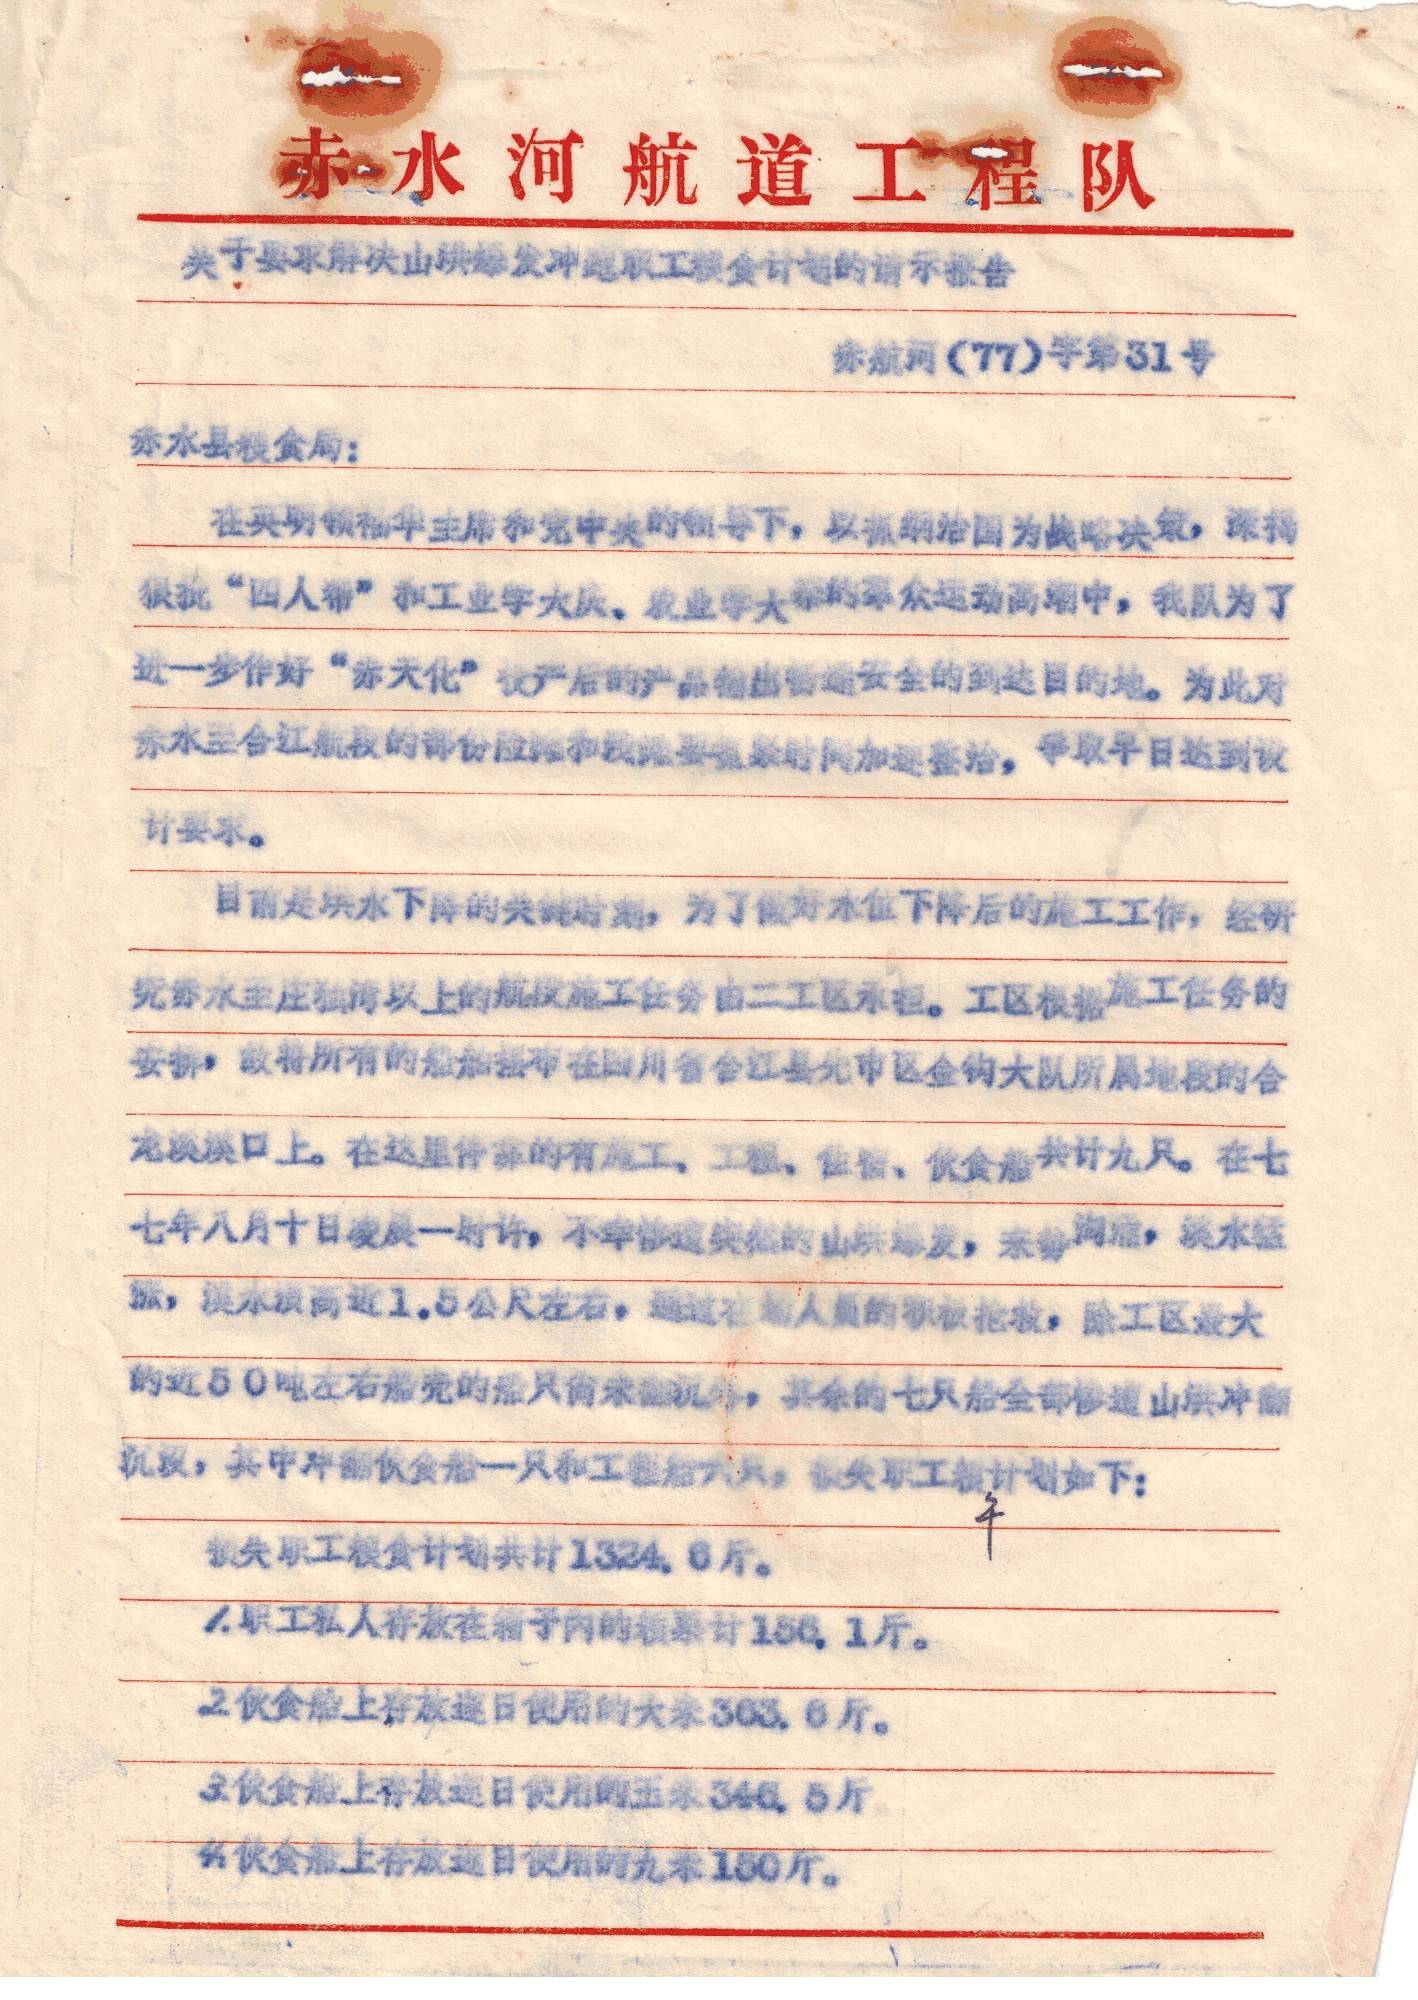 赤水河航道工程队
关于要求解决山洪爆发冲跑职工粮食计划的请示报告
赤航河(77)字第31号
赤水县粮食局:
在英明领袖华主席和党中央的领导下，以抓纲治国为战略决策，深揭
狠批“四人帮”和工业学大庆、农业学大寨的群众运动高潮中，我队为了
进一步作好“赤天化”投产后的产品输出畅通安全的到达目的地。为此对
赤水至合江航段的部份险滩和浅滩要抓紧时间加速整治，争取早日达到设
计要求。
目前是洪水下降的关键时刻，为了做好水位下降后的施工工作，经研
究赤水至庄独湾以上的航段施工任务由二工区承担。工区根据施工任务的
安排，故将所有的船舶摆布在四川省合江县先市区金钩大队所属地段的合
龙溪溪口上。在这里停靠的有施工、工程、住宿、伙食船共计九只。在七
七年八月十日凌晨一时许，不幸惨遭突然的山洪爆发，来势汹涌，溪水猛
涨，溪水浪高近1.5公尺左右，通过在船人员的积极抢救，除工区最大
的近50吨左右船壳的船只尚未翻沉外，其余的七只船全部惨遭山洪冲翻
沉没，其中冲翻伙食船一只和工程船六只，损失职工粮计划如下:
午
损失职工粮食计划共计1324.6斤。
1.职工私人存放在箱子内的粮票计156.1斤。
2.伙食船上存放逐日使用的大米363.6斤。
3.伙食船上存放逐日使用的玉米346.5斤
4.伙食船上存放逐日使用的九米150斤。